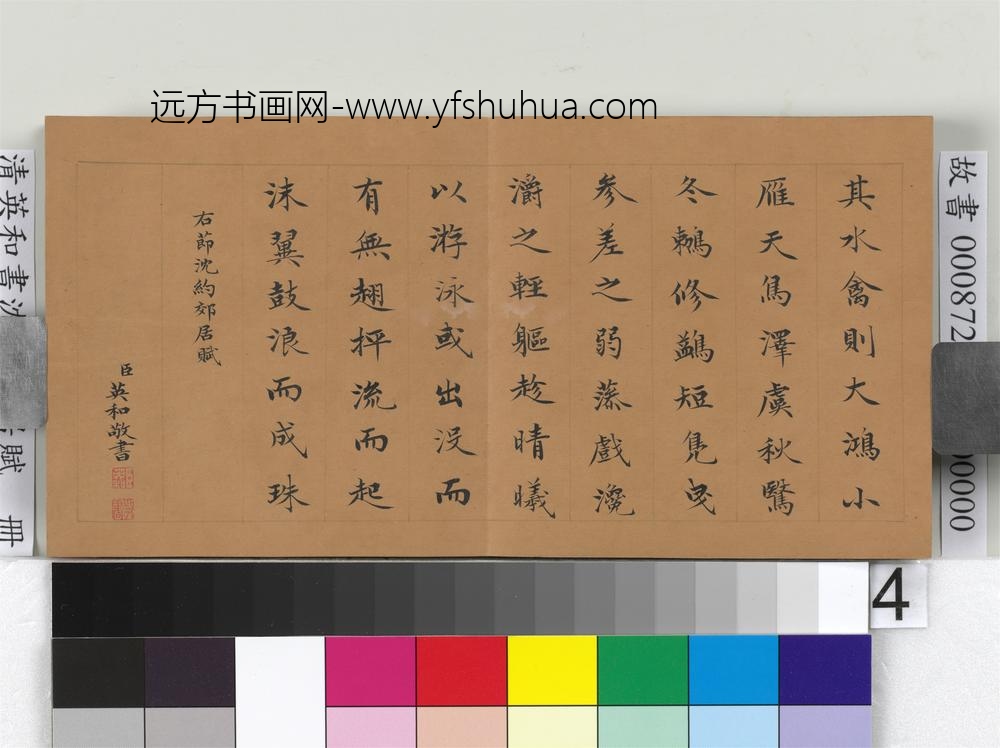 远方书画网-www.yfshuhua.com
其水禽則大鴻小
雁天馬澤虞秋鷖
冬鶇修鷁短鳧曳
參差之弱藻戲瀺
灂之輕軀趁晴曦
以游泳或出沒而
有無翅抨流而起
沫翼鼓浪而成珠
右節沈約郊居賦
臣英和敬書
故書 000872
0000
清英和書沈
賦 冊
4